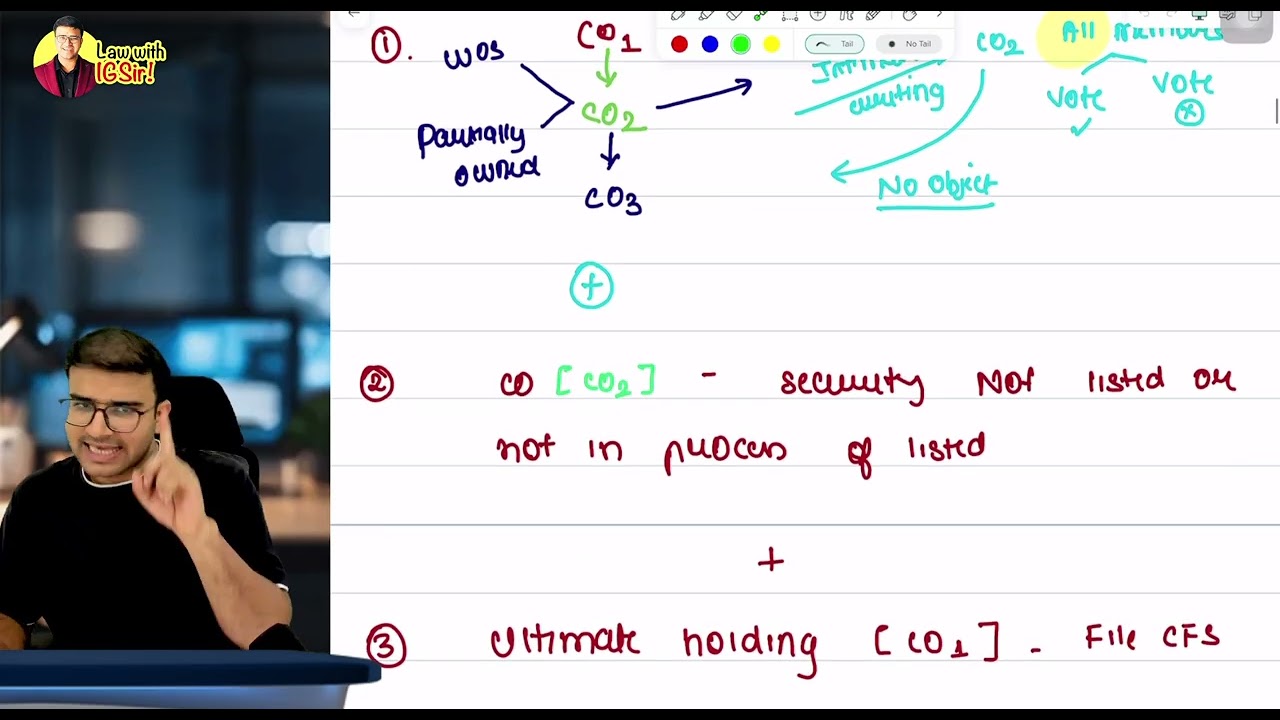 Law with
IGSir!
Tail
No Tail
①.
WOS
Partially
owned
CO1
CO2
CO3
meeting
CO2
All
vote
✓
vote
No Object
+
② CO [CO2] - security Not listed or
not in process of listed
+
③ Ultimate holding [CO1] - File CFS